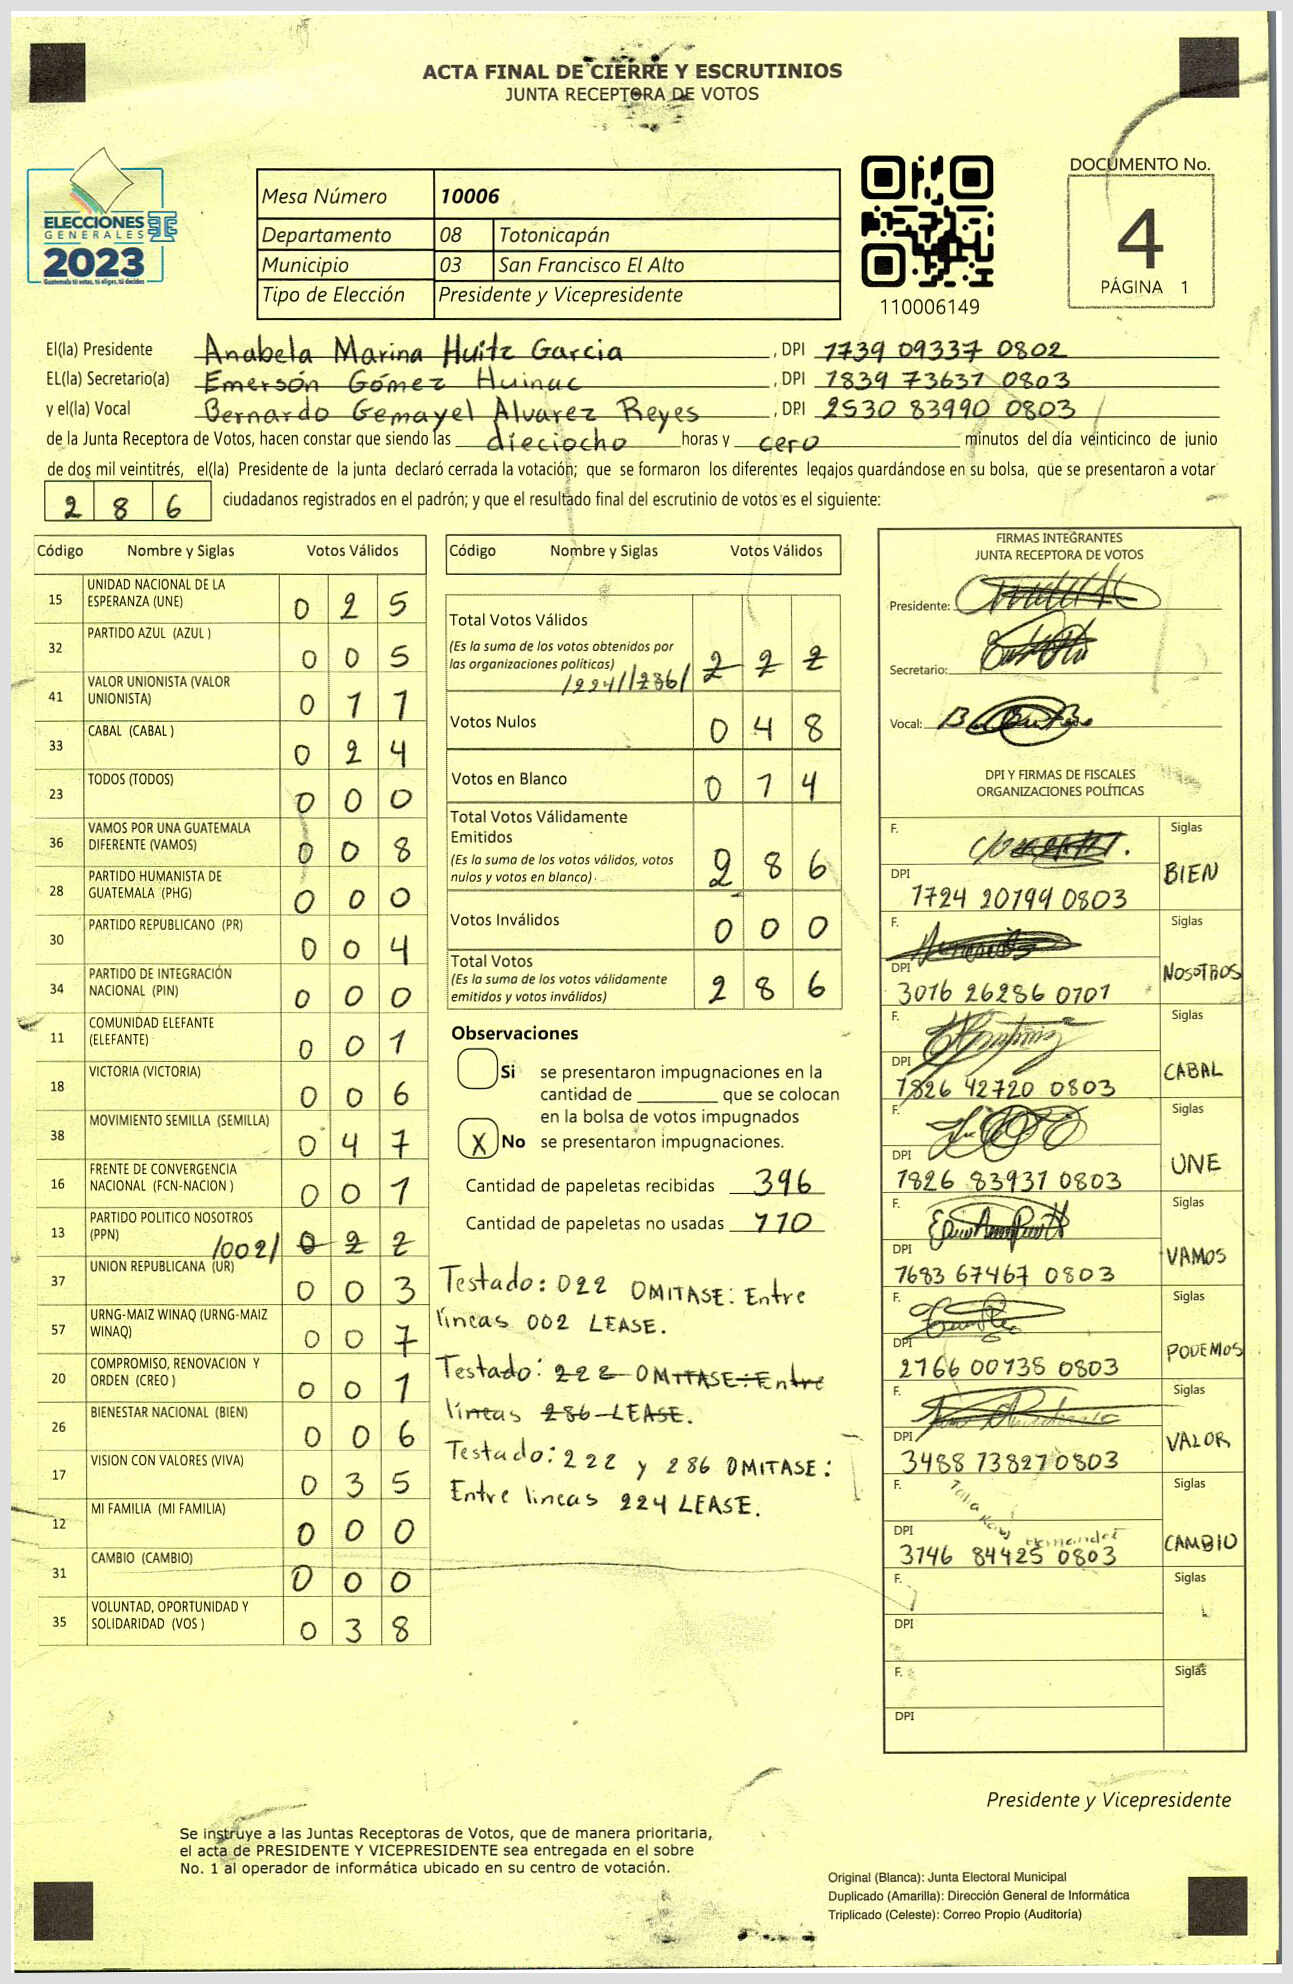 ACTA FINAL DE CIERRE Y ESCRUTINIOS
JUNTA RECEPTORA DE VOTOS
ELECCIONES
GENERALES
2023
Guatemala tú votas, tú eliges, tú decides
Mesa Número 10006
Departamento 08 Totonicapán
Municipio 03 San Francisco El Alto
Tipo de Elección Presidente y Vicepresidente
110006149
DOCUMENTO No.
4
PÁGINA 1
El(la) Presidente Anabela Marina Huitz Garcia, DPI 1739 09337 0802
EL(la) Secretario(a) Emersón Gómez Huinac, DPI 1839 73637 0803
y el(la) Vocal Bernardo Gemayel Alvarez Reyes, DPI 2530 83990 0803
de la Junta Receptora de Votos, hacen constar que siendo las dieciocho horas y cero minutos del día veinticinco de junio
de dos mil veintitrés, el(la) Presidente de la junta declaró cerrada la votación; que se formaron los diferentes legajos guardándose en su bolsa, que se presentaron a votar
2 8 6 ciudadanos registrados en el padrón; y que el resultado final del escrutinio de votos es el siguiente:
Código Nombre y Siglas Votos Válidos
15 UNIDAD NACIONAL DE LA ESPERANZA (UNE) 0 2 5
32 PARTIDO AZUL (AZUL ) 0 0 5
41 VALOR UNIONISTA (VALOR UNIONISTA) 0 1 1
33 CABAL (CABAL ) 0 2 4
23 TODOS (TODOS) 0 0 0
36 VAMOS POR UNA GUATEMALA DIFERENTE (VAMOS) 0 0 8
28 PARTIDO HUMANISTA DE GUATEMALA (PHG) 0 0 0
30 PARTIDO REPUBLICANO (PR) 0 0 4
34 PARTIDO DE INTEGRACIÓN NACIONAL (PIN) 0 0 0
11 COMUNIDAD ELEFANTE (ELEFANTE) 0 0 1
18 VICTORIA (VICTORIA) 0 0 6
38 MOVIMIENTO SEMILLA (SEMILLA) 0 4 7
16 FRENTE DE CONVERGENCIA NACIONAL (FCN-NACION ) 0 0 1
13 PARTIDO POLITICO NOSOTROS (PPN) /002/ 0 2 2
37 UNION REPUBLICANA (UR) 0 0 3
57 URNG-MAIZ WINAQ (URNG-MAIZ WINAQ) 0 0 7
20 COMPROMISO, RENOVACION Y ORDEN (CREO ) 0 0 1
26 BIENESTAR NACIONAL (BIEN) 0 0 6
17 VISION CON VALORES (VIVA) 0 3 5
12 MI FAMILIA (MI FAMILIA) 0 0 0
31 CAMBIO (CAMBIO) 0 0 0
35 VOLUNTAD, OPORTUNIDAD Y SOLIDARIDAD (VOS ) 0 3 8
Código Nombre y Siglas Votos Válidos
Total Votos Válidos
(Es la suma de los votos obtenidos por
las organizaciones políticas) 2 2 2
/224//286/
Votos Nulos 0 4 8
Votos en Blanco 0 1 4
Total Votos Válidamente
Emitidos
(Es la suma de los votos válidos, votos
nulos y votos en blanco) 2 8 6
Votos Inválidos 0 0 0
Total Votos
(Es la suma de los votos válidamente
emitidos y votos inválidos) 2 8 6
Observaciones
Si se presentaron impugnaciones en la
cantidad de ________ que se colocan
en la bolsa de votos impugnados
X No se presentaron impugnaciones.
Cantidad de papeletas recibidas 396
Cantidad de papeletas no usadas 110
Testado: 022 OMITASE: Entre
líneas 002 LEASE.
Testado: 222 OMITASE: Entre
líneas 286 LEASE.
Testado: 222 y 286 OMITASE:
Entre lineas 224 LEASE.
FIRMAS INTEGRANTES
JUNTA RECEPTORA DE VOTOS
Presidente:
Secretario:
Vocal:
DPI Y FIRMAS DE FISCALES
ORGANIZACIONES POLÍTICAS
F. Siglas
DPI 1724 20799 0803 BIEN
F. Siglas
DPI 3016 26286 0701 NOSOTROS
F. Siglas
DPI 1826 42720 0803 CABAL
F. Siglas
DPI 1826 83937 0803 UNE
F. Siglas
DPI 1683 67467 0803 VAMOS
F. Siglas
DPI 2166 00735 0803 PODEMOS
F. Siglas
DPI 3488 73827 0803 VALOR
F. Siglas
DPI 3146 84425 0803 CAMBIO
F. Siglas
DPI
F. Siglas
DPI
Presidente y Vicepresidente
Se instruye a las Juntas Receptoras de Votos, que de manera prioritaria,
el acta de PRESIDENTE Y VICEPRESIDENTE sea entregada en el sobre
No. 1 al operador de informática ubicado en su centro de votación.
Original (Blanca): Junta Electoral Municipal
Duplicado (Amarilla): Dirección General de Informática
Triplicado (Celeste): Correo Propio (Auditoría)